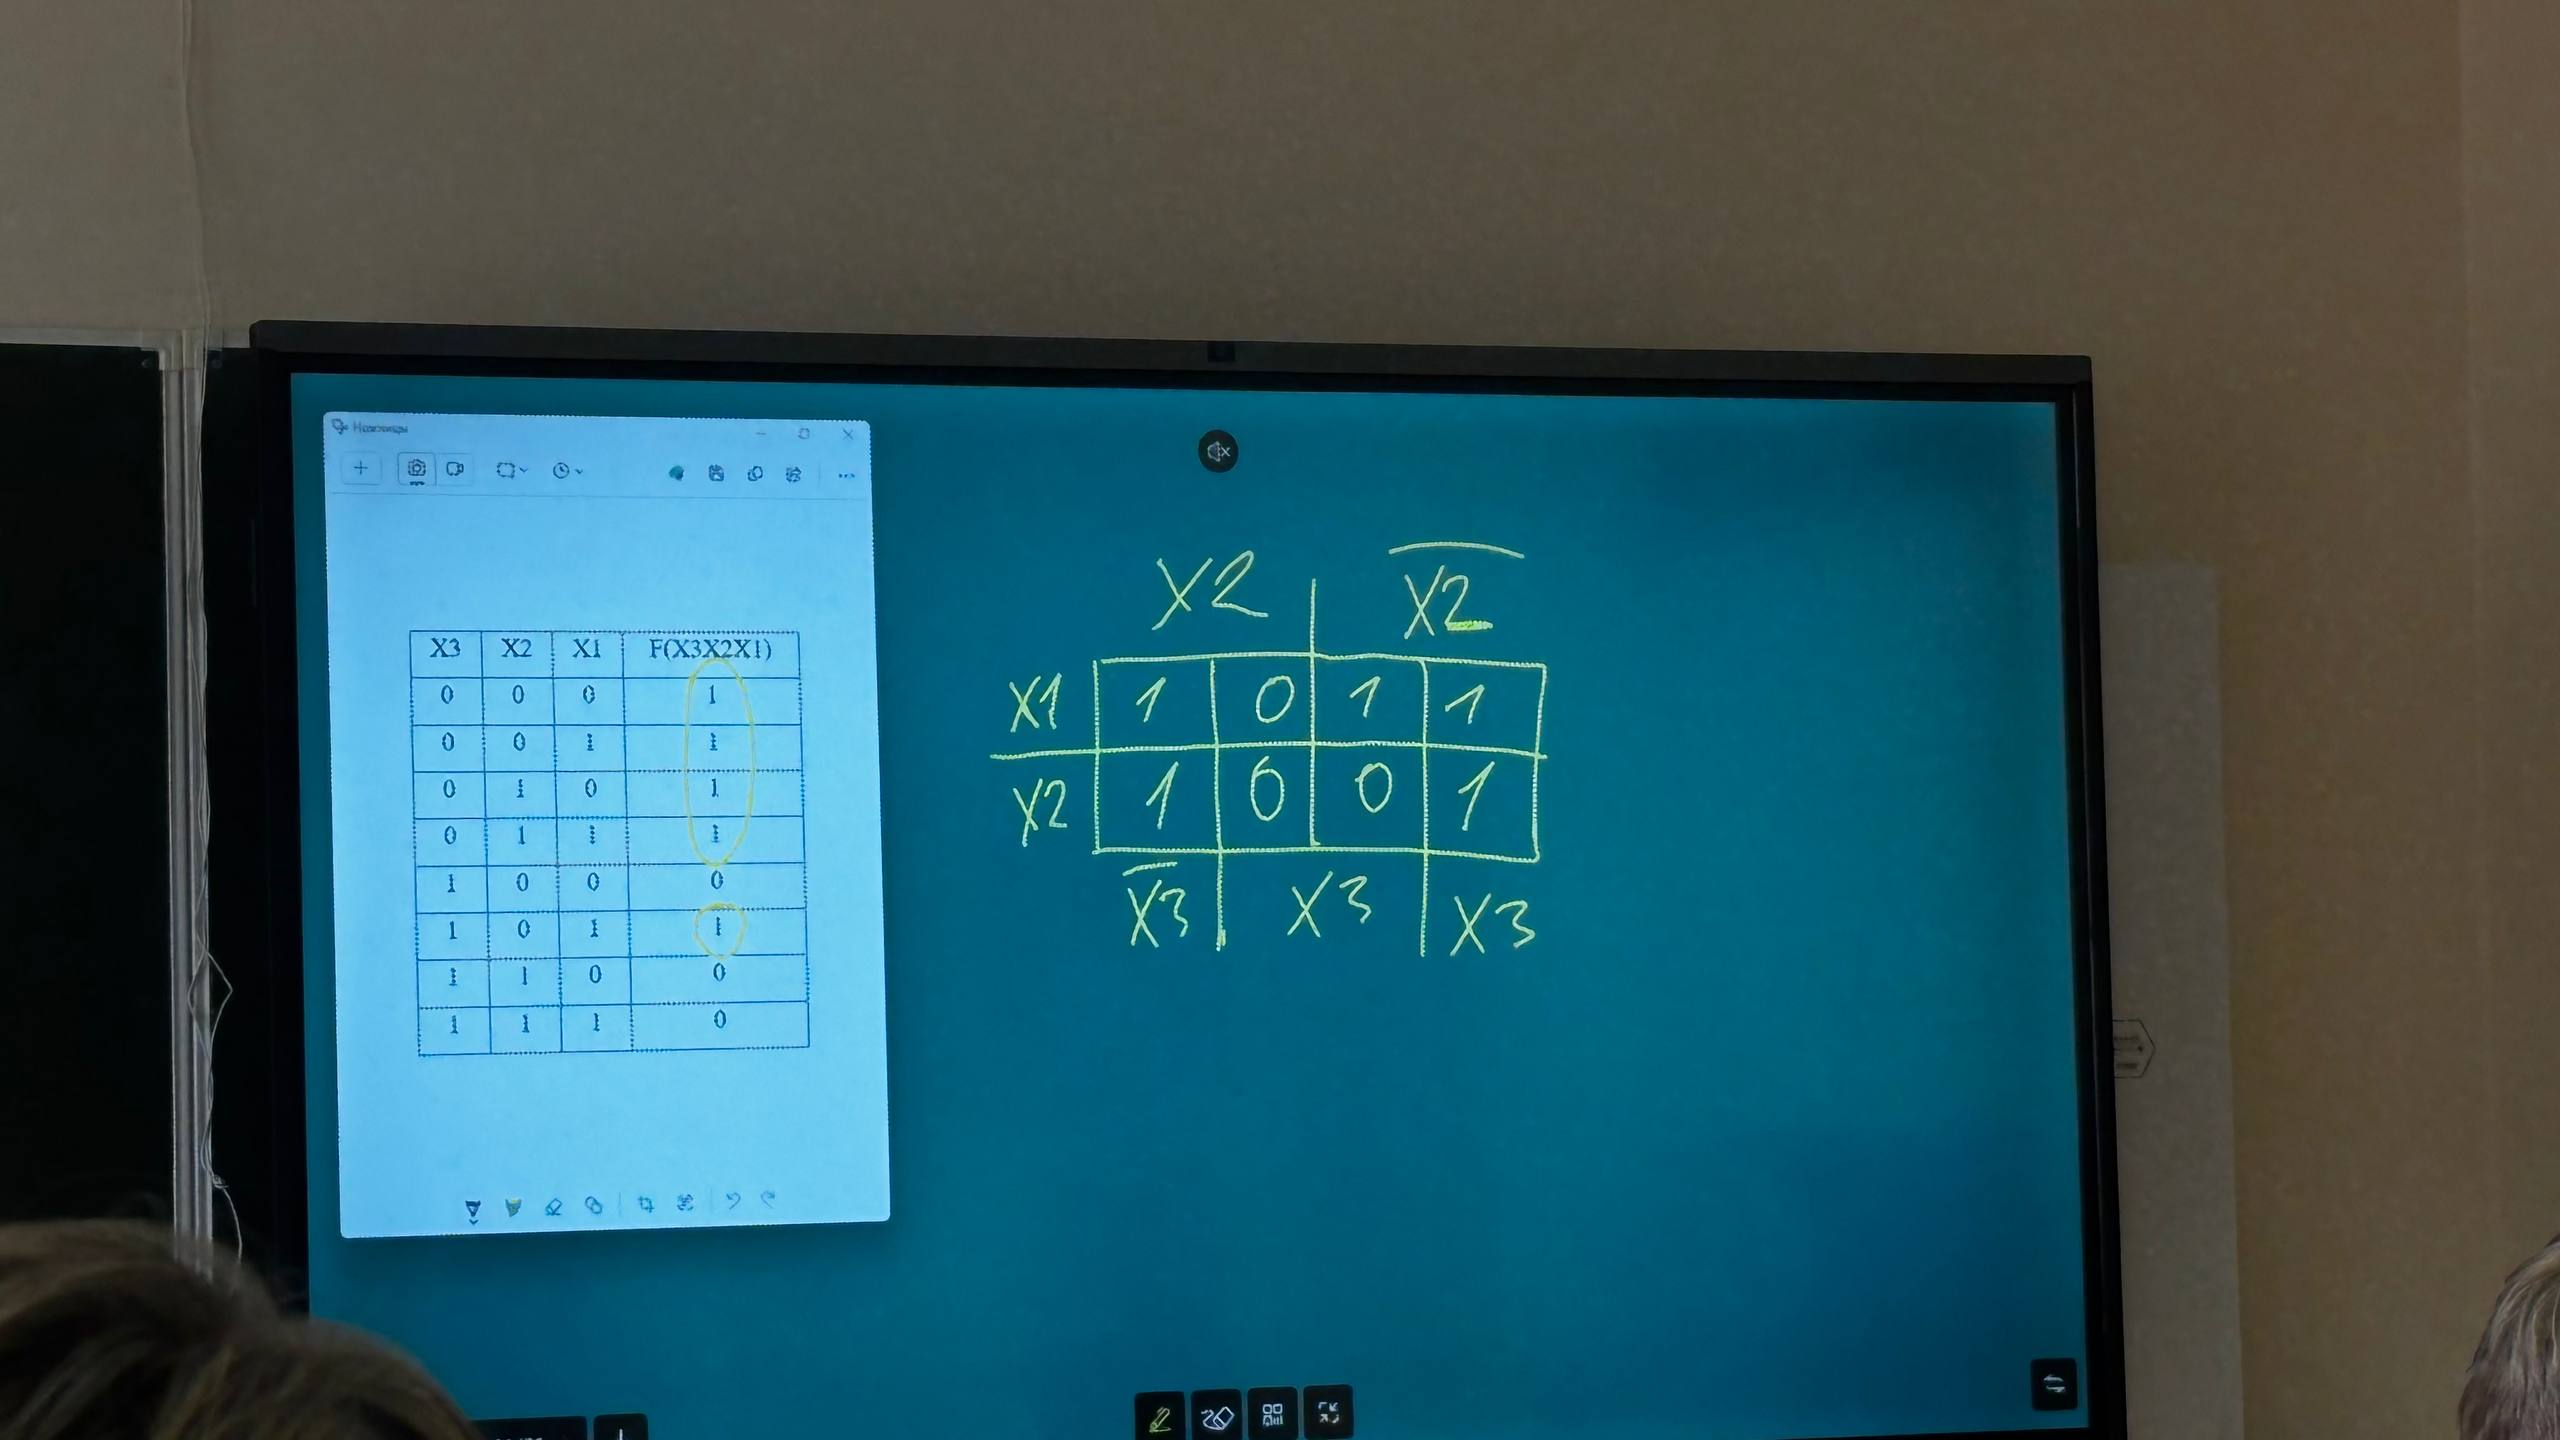 Ножницы
X3 X2 X1 F(X3X2X1)
0 0 0 1
0 0 1 1
0 1 0 1
0 1 1 1
1 0 0 0
1 0 1 1
1 1 0 0
1 1 1 0
X2 X̅2̅
X1 1 0 1 1
X2 1 0 0 1
X̅3̅ X3 X3